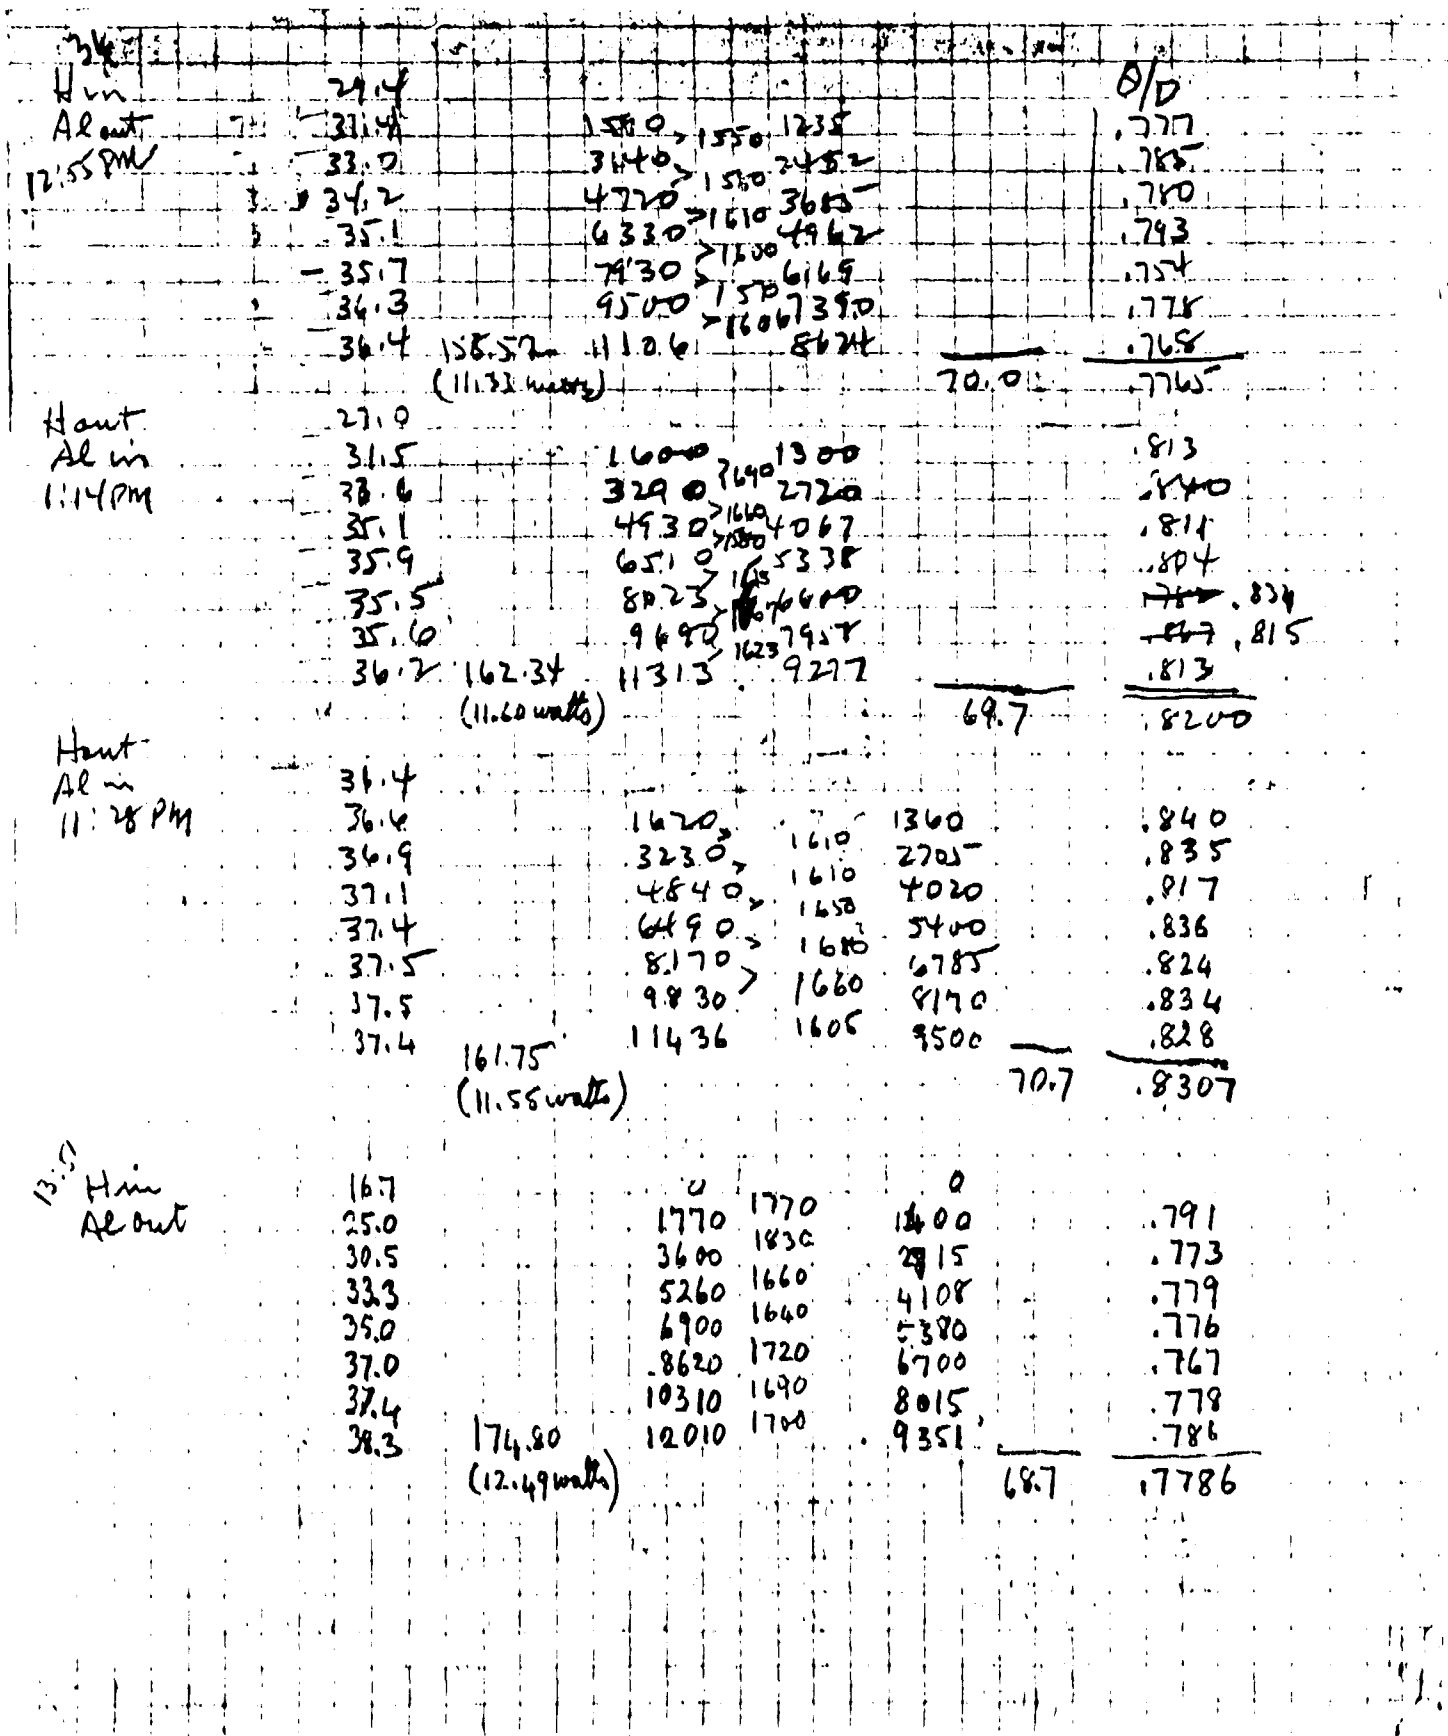 H in 29.4 θ/D
Al out 31.4 1590 1235 .777
12:55 PM 33.0 3140 > 1550 2452 .785
34.2 4720 > 1580 3685 .780
35.1 6330 > 1610 4962 .793
- 35.7 7930 > 1600 6169 .754
36.3 9500 1570 7390 .778
36.4 158.52 11106 > 1606 8624 .768
(11.33 watts) 70.0 .7765
H out 27.0
Al in 31.5 1600 1300 .813
1:14 PM 33.6 3290 1690 2720 .840
35.1 4930 > 1640 4067 .811
35.9 6510 > 1580 5338 .804
35.5 8023 6600 .834
35.6 9690 7958 .815
36.2 162.34 11313 1623 9277 .813
(11.60 watts) 69.7 .8200
H out
Al in 36.4
11:28 PM 36.6 1620 1360 .840
36.9 3230 > 1610 2705 .835
37.1 4840 > 1610 4020 .817
37.4 6490 > 1650 5400 .836
37.5 8170 > 1680 6785 .824
37.5 9830 > 1660 8170 .834
37.4 161.75 11436 1605 9500 .828
(11.55 watts) 70.7 .8307
H in 16.7 0 0
Al out 25.0 1770 1770 1400 .791
30.5 3600 1830 2815 .773
33.3 5260 1660 4108 .779
35.0 6900 1640 5380 .776
37.0 8620 1720 6700 .767
37.4 10310 1690 8015 .778
38.3 174.80 12010 1700 9351 .786
(12.49 watts) 68.7 .7786